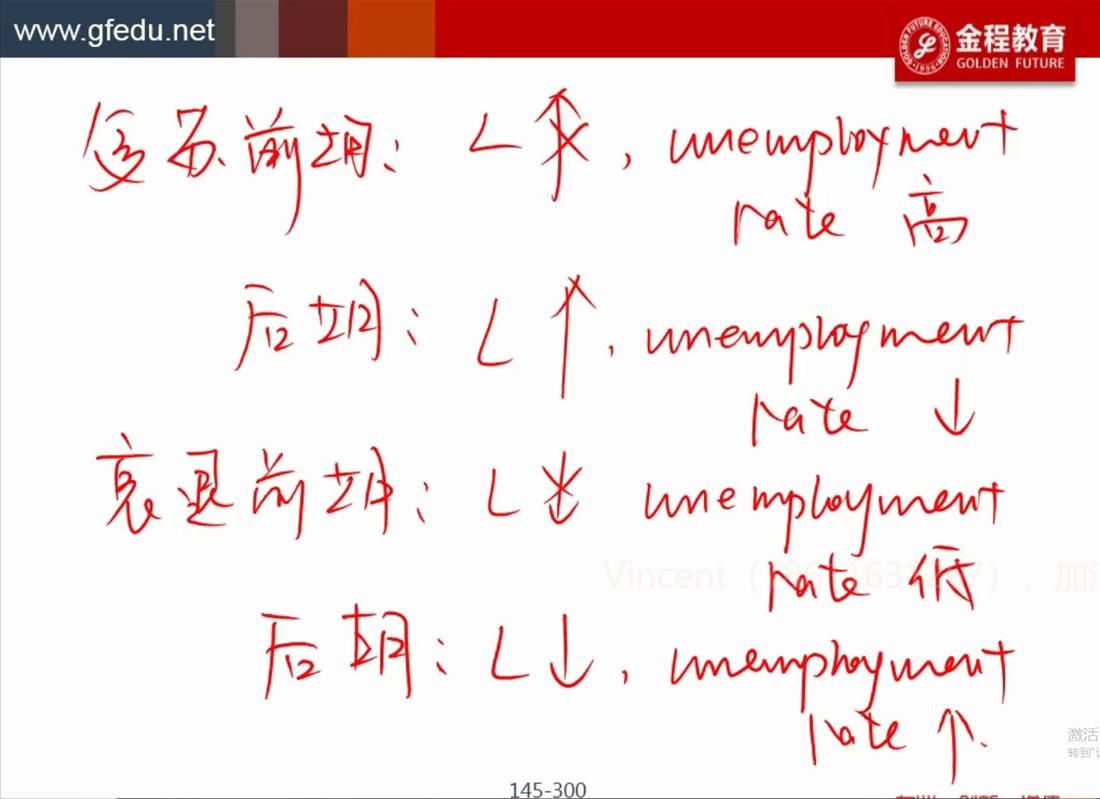 www.gfedu.net
金程教育
GOLDEN FUTURE
复苏前期: L ↑, unemployment
rate 高
后期: L ↑, unemployment
rate ↓
衰退前期: L ↓ unemployment
rate 低
Vincent
加油
后期: L ↓, unemployment
rate ↑.
激活
转到"设
145-300